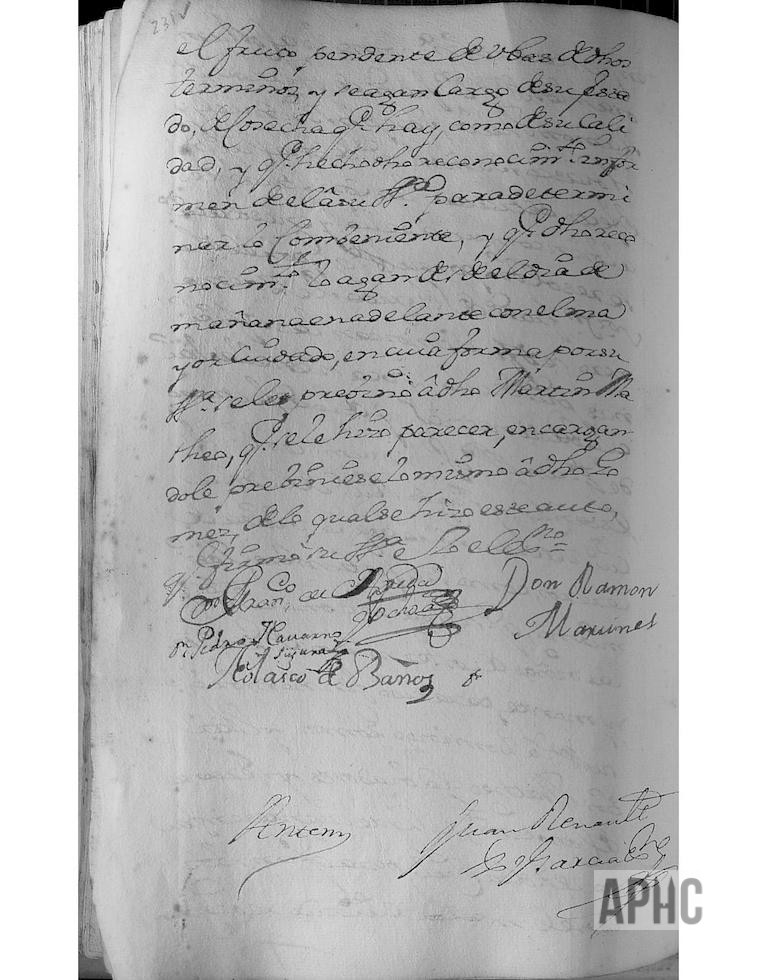 231v
el fruto pendente de Vbas de dhos
terminos, y se agan Cargo de su esta
do, de Cosecha q.e hay, como de su Cali
dad, y q.e hecho dho reconocim.to infor
men de la su SS.a para determi
nar lo Combeniente, y q.e dho reco
nocim.to lo agan desde el dia de
mañana en adelante con el ma
yor Cuidado, en cuia forma por su
SS.a se les prebino â dho Martin Ma
theo, q.e se le hizo parecer, encargan
dole prebiniese lo mismo â dho Go
mez, de lo qual se hizo este auto,
q.e firmó su SS.a e Yo el Ess.no =
Fran.co de
Ochoa
Don Ramon
Martines
D.n Pedro Navarro
Segura
Nolasco de Baños
Antemi
Juan Renault
Garcia
APHC